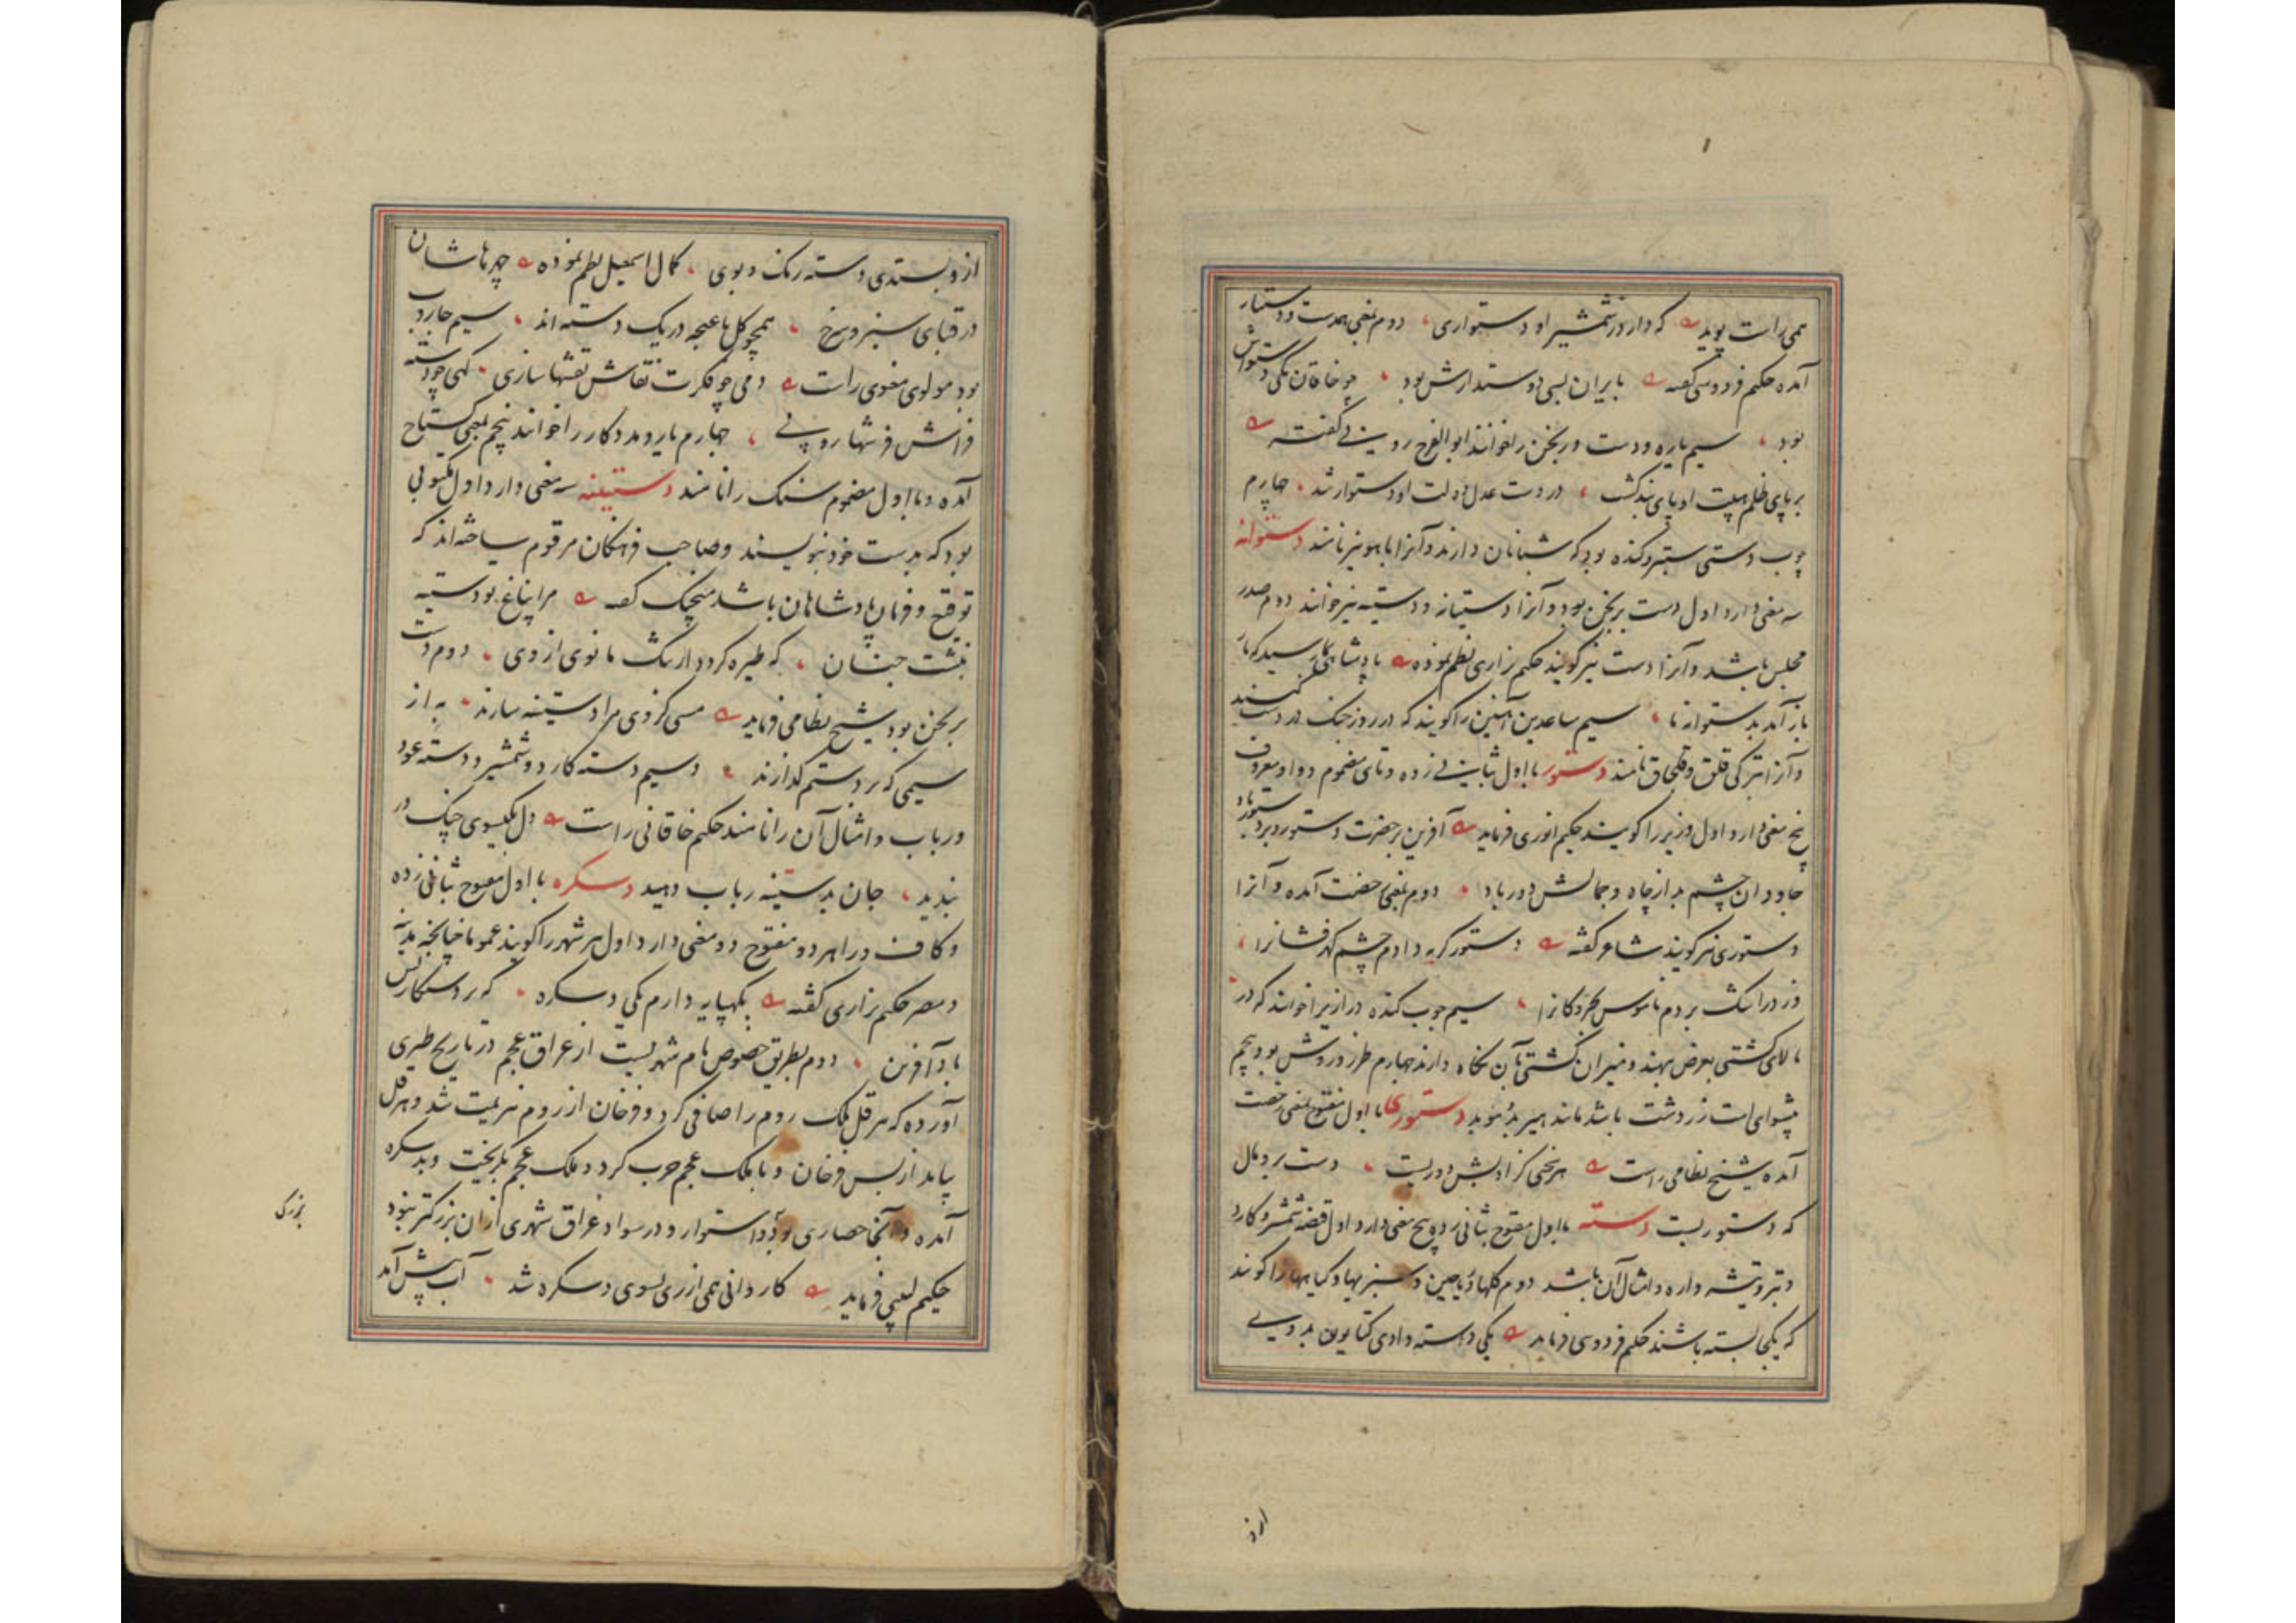 همی راست پوید که دارد ز شمشیر او دستواری دوم بمعنی همدست و دستیار
آمده حکیم فردوسی گفته بایران بسی دوستدارش بود چو خاقان یکی دستوارش
بود سیم یاره و دست ورنجن را خوانند ابو الفرج رونی گفته
بر پای ظلم هیبت او پای بند گشت در دست عدل دولت او دستوار شد چهارم
چوب دستی ستبر و کنده بود که شبانان دارند و آنرا باهو نیز نامند دستوانه
سه معنی دارد اول دست برنجن بود و آنرا دستیانه و دستینه نیز خوانند دوم صدر
مجلس باشد و آنرا دست نیز گویند حکیم نزاری نظم نموده
باز آمد بدستوان ما سیم ساعدین آهنین را گویند که در روز جنگ در دست کنند
و آنرا بترکی قلق و قلچاق نامند دستور با اول بثانی زده و تای مضموم و واو معروف
پنج معنی دارد اول وزیر را گویند حکیم انوری فرماید آفرین بر حضرت دستور و بر دستور باد
جاودان چشم بد از جاه و جمالش دور باد دوم بمعنی رخصت آمده و آنرا
دستوری نیز گویند شاعر گفته دستور گریه دادم چشم گهرفشانرا
سیم چوب کنده دراز را خوانند که در
بالای کشتی بعرض بنهند و میزان کشتی بآن نگاه دارند چهارم طرز و روش بود پنجم
پیشوای امت زردشت باشد مانند هیربد و موبد دستوری با اول مفتوح بمعنی رخصت
آمده شیخ نظامی راست دست بر وی مال
که دستوریست دسته با اول مفتوح بثانی زده پنج معنی دارد اول قبضه شمشیر و کارد
و تبر و تیشه و اره و امثال آن باشد دوم گلها و ریاحین و سبزیها و گیاهها را گویند
که یکجا بسته باشند حکیم فردوسی فرماید یکی دسته دادی کتایون بدوی
ازو
ازو بستدی دسته رنگ و بوی کمال اسمعیل نظم نموده چهرهاشان
در قبای سبز و سرخ همچو گل با غنچه در یک دسته اند سیم جاروب
بود مولوی معنوی راست دمی چو فکرت نقاش نقشها سازی گهی چو دسته
فراش فرشها روبی چهارم یار و مددکار را خوانند پنجم بمعنی گستاخ
آمده و با اول مضموم سنگ را نامند دستینه سه معنی دارد اول مکتوبی
بود که بدست خود بنویسند و صاحب فرهنگان مرقوم ساخته اند که
توقیع و فرمان پادشاهان باشد منجیک گفته
نبشت چنان که طیره گردد ارتنگ مانوی از وی دوم دست
برنجن بود شیخ نظامی فرماید مسی کز وی مرا دستینه سازند به از
سیمی که بر دستم گدازند و سیم دسته کارد و شمشیر و دسته عود
و رباب و امثال آن را نامند حکیم خاقانی راست دل بگیسوی چنگ در
بندید جان بدستینه رباب دهید دسکره با اول مفتوح بثانی زده
و کاف و را هر دو مفتوح دو معنی دارد اول هر شهر را گویند عموما چنانچه مدینه
و مصر حکیم نزاری گفته
باد آفرین دوم بطریق خصوص نام شهریست از عراق عجم در تاریخ طبری
آورده که هرقل ملک روم را صافی کرد و فرخان از روم هزیمت شد و هرقل
بیامد از پس فرخان و با ملک عجم حرب کرد و ملک عجم بگریخت و بدسکره
آمده و آنجا حصاری بود استوار و در سواد عراق شهری ازان بزرگتر نبود
حکیم لبیبی فرماید کاروانی همی از ری بسوی دسکره شد آب پیش آمد
بزرگی